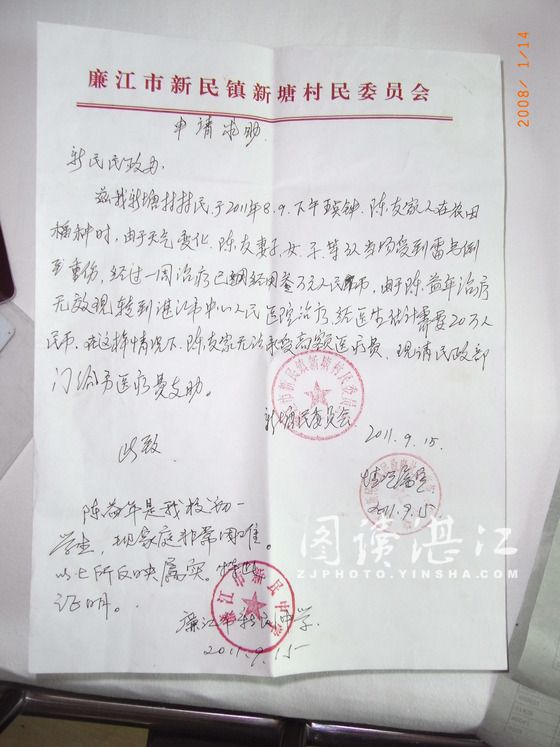 2008/ 1/14
廉江市新民镇新塘村民委员会
申请求助
新民民政办.
兹我新塘村村民,于2011年8.9.下午 钟.陈友家人在农田
播种时,由于天气变化.陈友妻子,女.子.等 当场受到雷击倒
至重伤,经过一周治疗已 用叁万元人民币,由于陈益年治疗
无效现转到湛江市中心人民医院治疗,经医生估计需要20万人
民币.在这样情况下.陈友家无法承受高额医疗费.现请民政部
门给予医疗费支助。
新塘民委员会
2011.9.15.
此致
情况属实
2011.9.15
陈益年是我校初一
学生,现家庭非常困难。
以上所反映属实。特此
证明。
廉江市新民中学.
2011.9.15
图读湛江
ZJPHOTO.YINSHA.COM